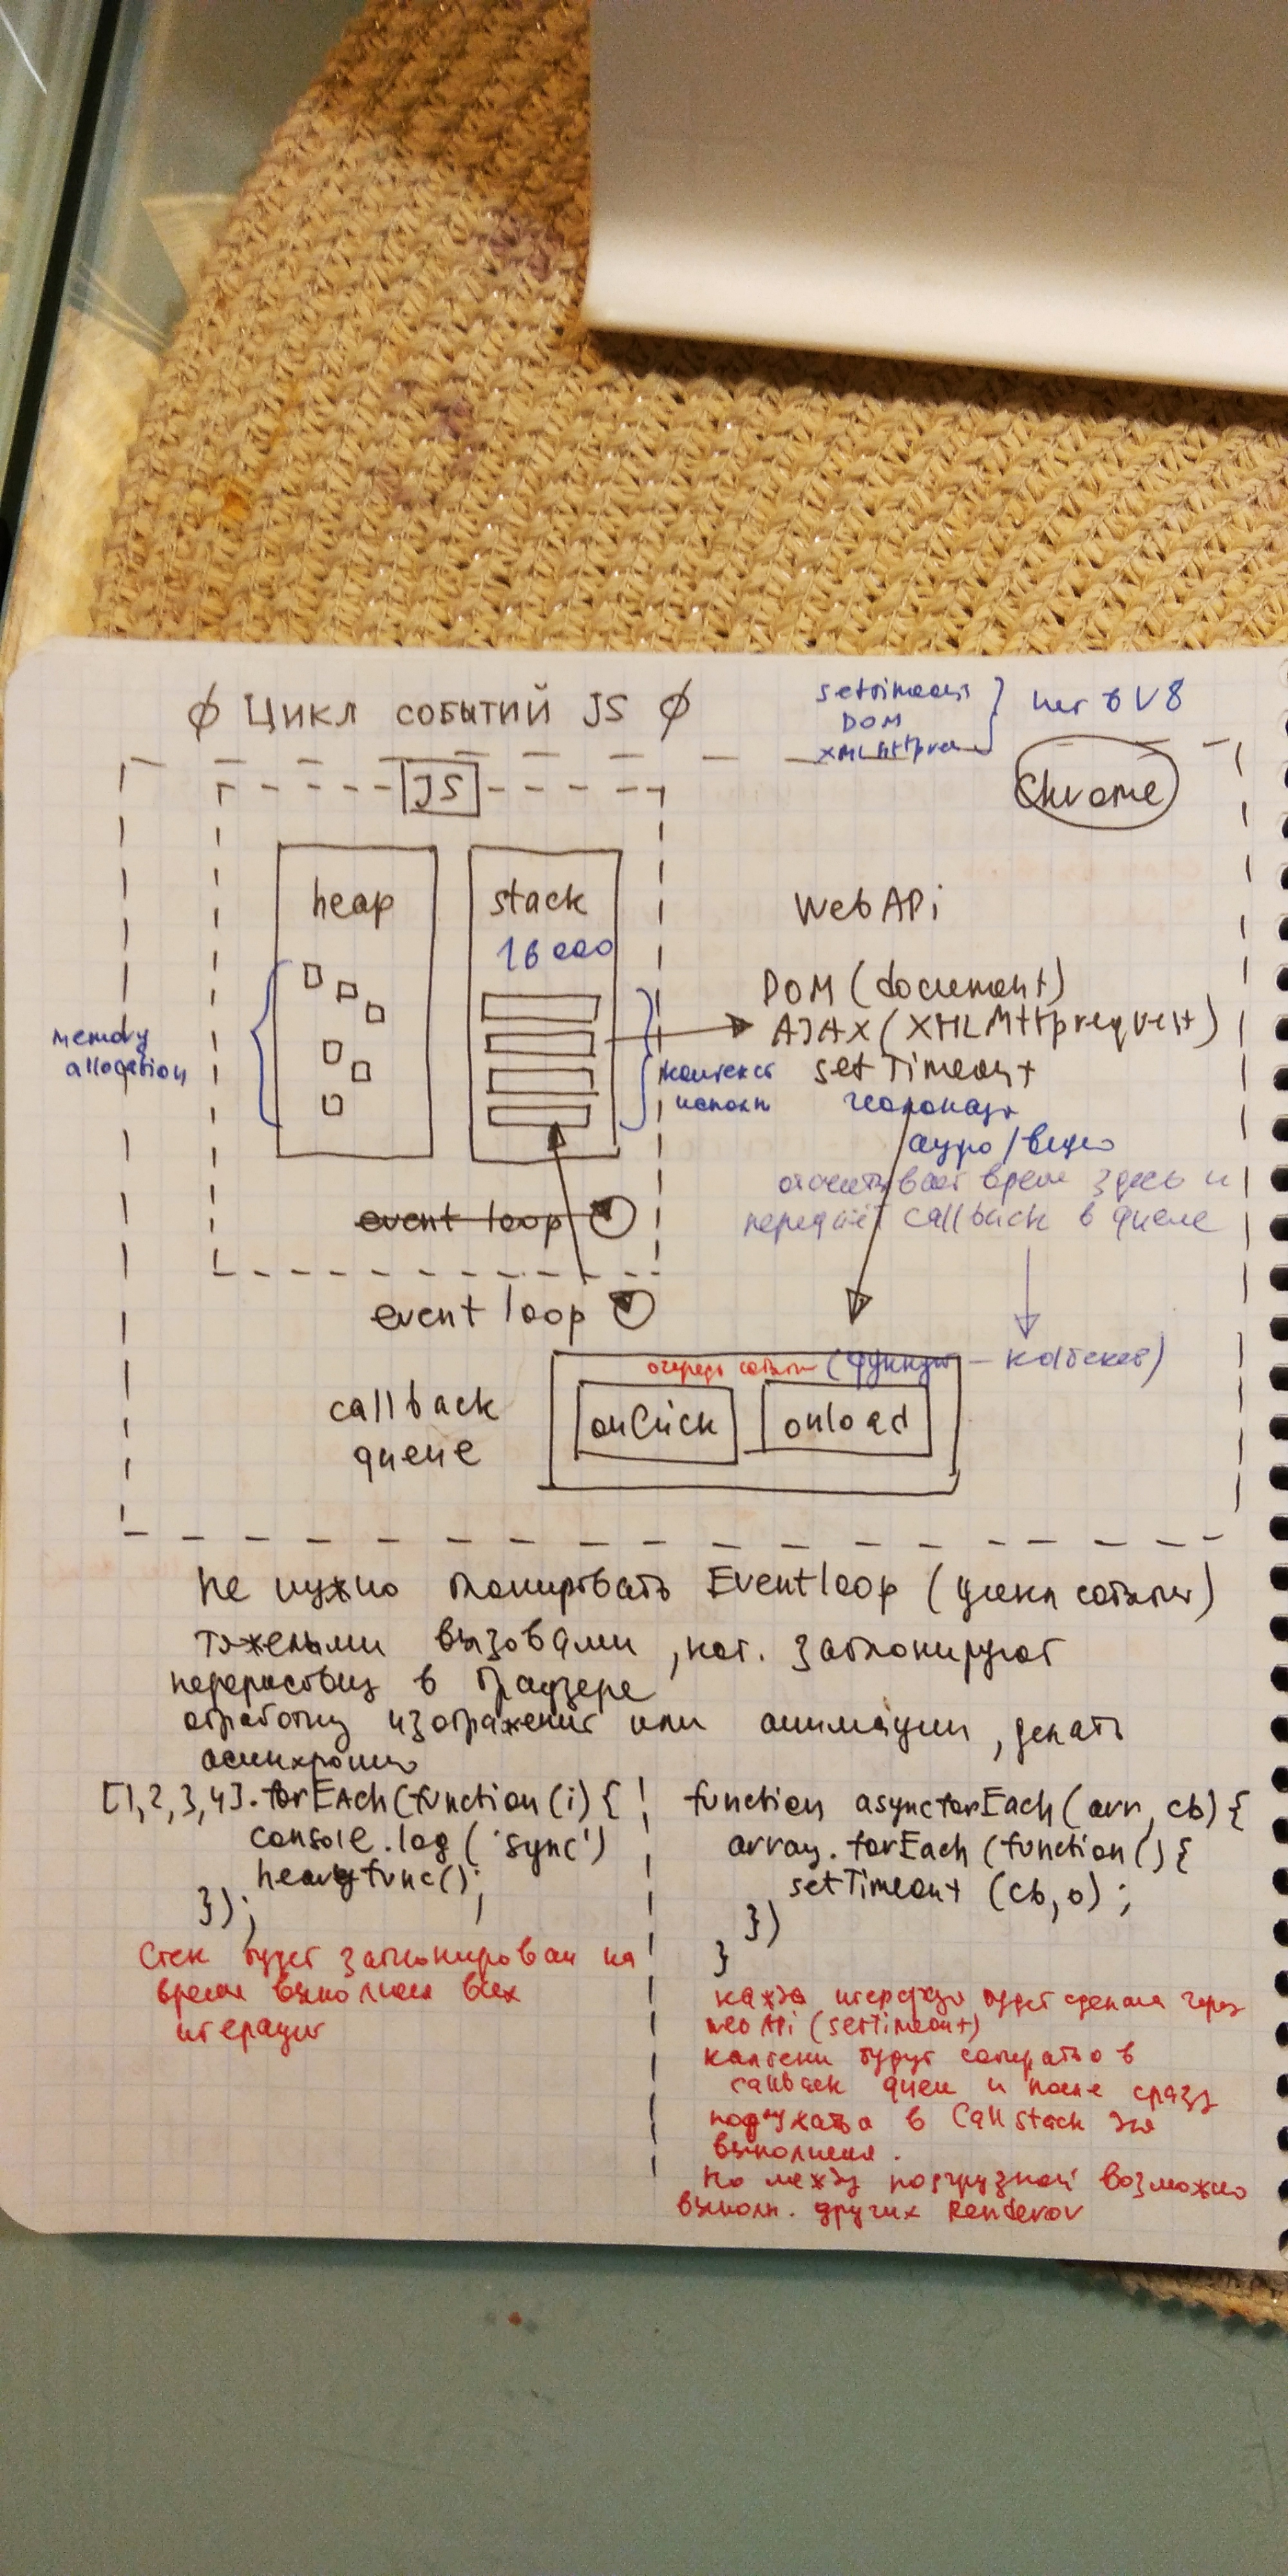 ∅ Цикл событий JS ∅
setTimeout
DOM
XMLHttpreq
нет в V8
JS
Chrome
heap
stack
16 000
WebAPi
DOM (document)
AJAX (XMLHttprequest)
setTimeout
геолокац
аудио/видео
memory
allocation
контекст
исполн
отсчитывает время здесь и
передаёт callback в queue
event loop
event loop
очередь событи (функции - колбеков)
callback
queue
onClick
onload
Не нужно блокировать Eventloop (цикл событи)
тяжелыми вызовами, кот. заблокируют
перерисовку в браузере
обработку изображения или анимации, делать
асинхронно
[1,2,3,4].forEach(function(i){
console.log('sync')
heavyfunc();
});
Стек будет заблокирован на
время выполнен всех
итераций
function asyncforEach(arr, cb){
array.forEach(function(){
setTimeout (cb, 0);
})
}
кажда итерация будет сделана через
web Api (setTimeout)
калбеки будут собиратьо в
callback queu и после сразу
подгужатьа в Call stack для
выполнения.
Но между подгрузкой возможно
выполн. других Renderov